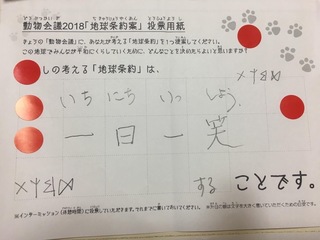 どうぶつかいぎ ちきゅうじょうやくあん とうひょうようし
動物会議2018「地球条約案」投票用紙
きょうの「動物会議」に、あなたが考える「地球条約」を1つ提案してください。
この地球でみんなが平和にくらしていくために、どんなことを決めたらよいと思いますか?
しの考える「地球条約」は、
いち にち いっ しょう
一日一笑
する ことです。
※インターミッション(休憩時間)に投票していただきます。それまでに書いておいてください。